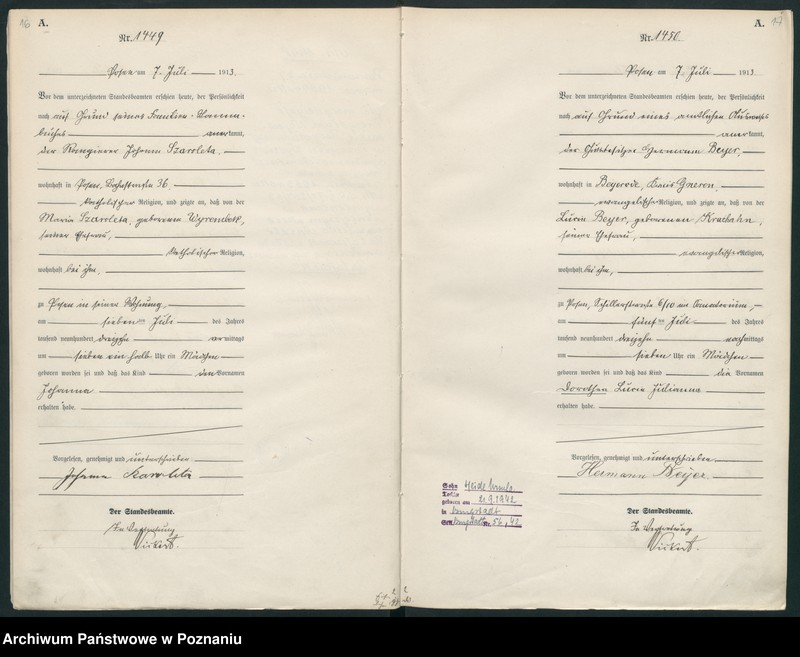 16 A.
Nr. 1449
Posen am 7. Juli 1913.
Vor dem unterzeichneten Standesbeamten erschien heute, der Persönlichkeit
nach auf Grund seines Familien-Stamm-
buches anerkannt,
der Rangierer Johann
wohnhaft in Posen, 36.
katholischer Religion, und zeigte an, daß von der
Maria geborenen
seiner Ehefrau,
katholischer Religion,
wohnhaft bei ihm,
zu Posen in seiner Wohnung,
am sieben ten Juli des Jahres
tausend neunhundert dreizehn vormittags
um sieben ein halb Uhr ein Mädchen
geboren worden sei und daß das Kind den Vornamen
Johanna
erhalten habe.
Vorgelesen, genehmigt und unterschrieben
Johann
Der Standesbeamte.
In Vertretung
A. 17
Nr. 1450
Posen am 7. Juli 1913.
Vor dem unterzeichneten Standesbeamten erschien heute, der Persönlichkeit
nach auf Grund eines amtlichen Ausweises
anerkannt,
der Gutsbesitzer Hermann Beyer,
wohnhaft in Kreis Gnesen,
evangelischer Religion, und zeigte an, daß von der
Lucie Beyer, geborenen
seiner Ehefrau,
evangelischer Religion,
wohnhaft bei ihm,
zu Posen, Schillerstraße 6/10 im Sanatorium,
am fünf ten Juli des Jahres
tausend neunhundert dreizehn nachmittags
um sieben Uhr ein Mädchen
geboren worden sei und daß das Kind die Vornamen
Dorothea Lucie Julianna
erhalten habe.
Vorgelesen, genehmigt und unterschrieben
Hermann Beyer
Sohn
Tochter
geboren am 2.9.1942
in
Der Standesbeamte.
In Vertretung
Archiwum Państwowe w Poznaniu